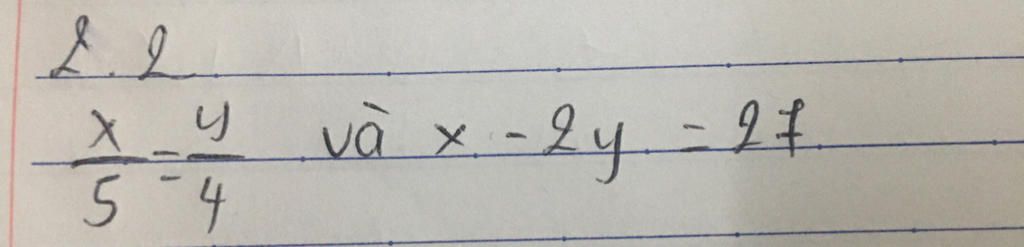 2.2
x/5 = y/4 và x - 2y = 27